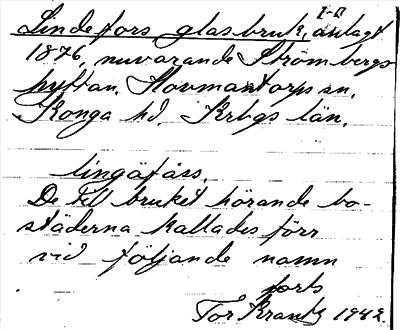 1-a
Lindefors, glasbruk, anlagt
1876, nuvarande Strömbergs-
hyttan. Hovmantorps sn.
Konga hd. Krbgs län.
lingäfåss.
De till bruket hörande bo-
städerna kallades förr
vid följande namn
forts
Tor Krantz 1942.